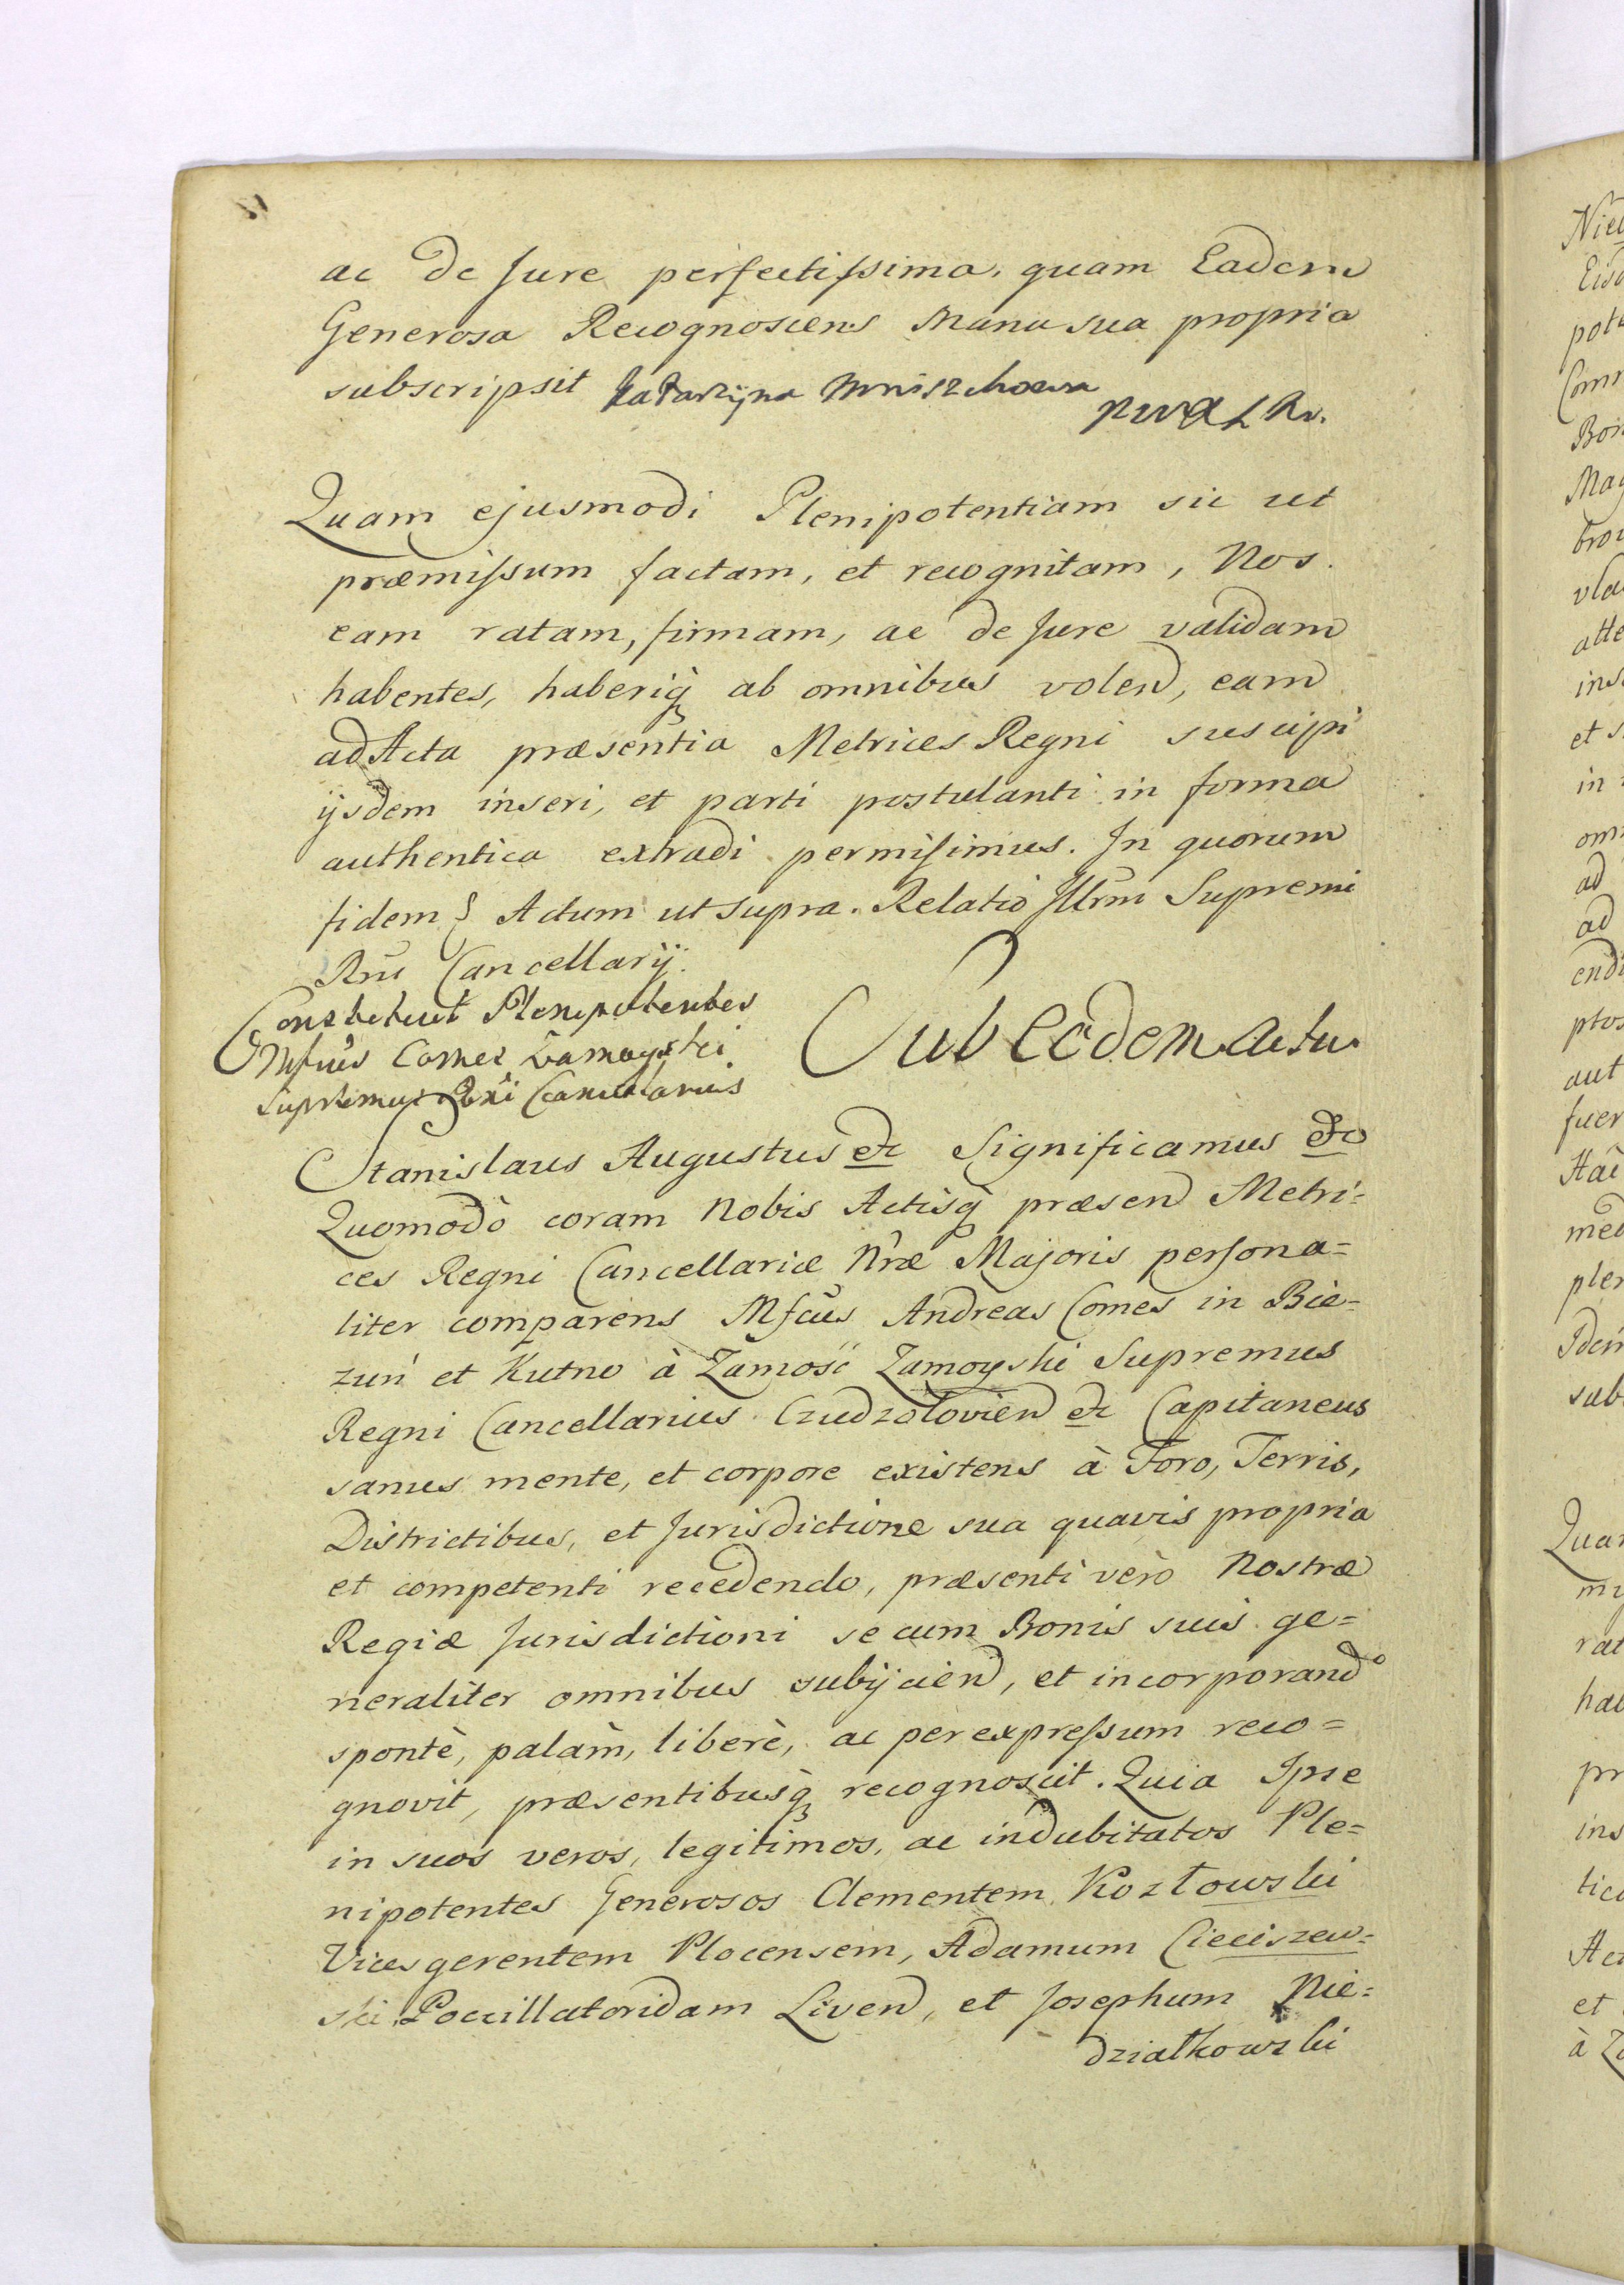 ac de Jure perfectissima, quam Eadem
Generosa Recognoscens Manu sua propria
subscripsit Katarzyna Mniszchowa
Quam ejusmodi Plenipotentiam sic ut
præmissum factam, et recognitam, Nos
eam ratam, firmam, ac de Jure validam
habentes, haberiq̀ ab omnibus volen̄, eam
ad Acta præsentia Metrices Regni suscipi
ijsdem inseri, et parti postulanti in forma
authentica extradi permisimus. In quorum
fidem Actum ut supra. Relatio Illrm̄i Supremi
Rn̄i Cancellarij.
Constituit Plenipotentes
Mfcūs Comes Zamoyski
Supremus Rni Cancellarius
Sub Eodem Actu
Stanislaus Augustus etc Significamus etc
Quomodò coram Nobis Actisq̀ præsen̄ Metri=
ces Regni Cancellariæ Nr̄æ Majoris persona=
liter comparens Mfcūs Andreas Comes in Bie=
zuń et Kutno à Zamość Zamoyski Supremus
Regni Cancellarius Czudzoloviēn etc Capitaneus
sanus mente, et corpore existens à Foro, Terris,
Districtibus, et Jurisdictione sua quavis propria
et competenti recedendo, præsenti verò Nostræ
Regiæ Jurisdictioni se cum Bonis suis ge=
neraliter omnibus subijcien̄, et incorporando
spontè, palàm, liberè, ac per expressum reco=
gnovit, præsentibusq̀ recognoscit. Quia Ipse
in suos veros, legitimos, ac indubitatos Ple=
nipotentes Generosos Clementem Kozłowski
Vicesgerentem Plocensem, Adamum Cieciszew=
ski Pocillatoridam Liven̄, et Josephum Nie=
działkowski